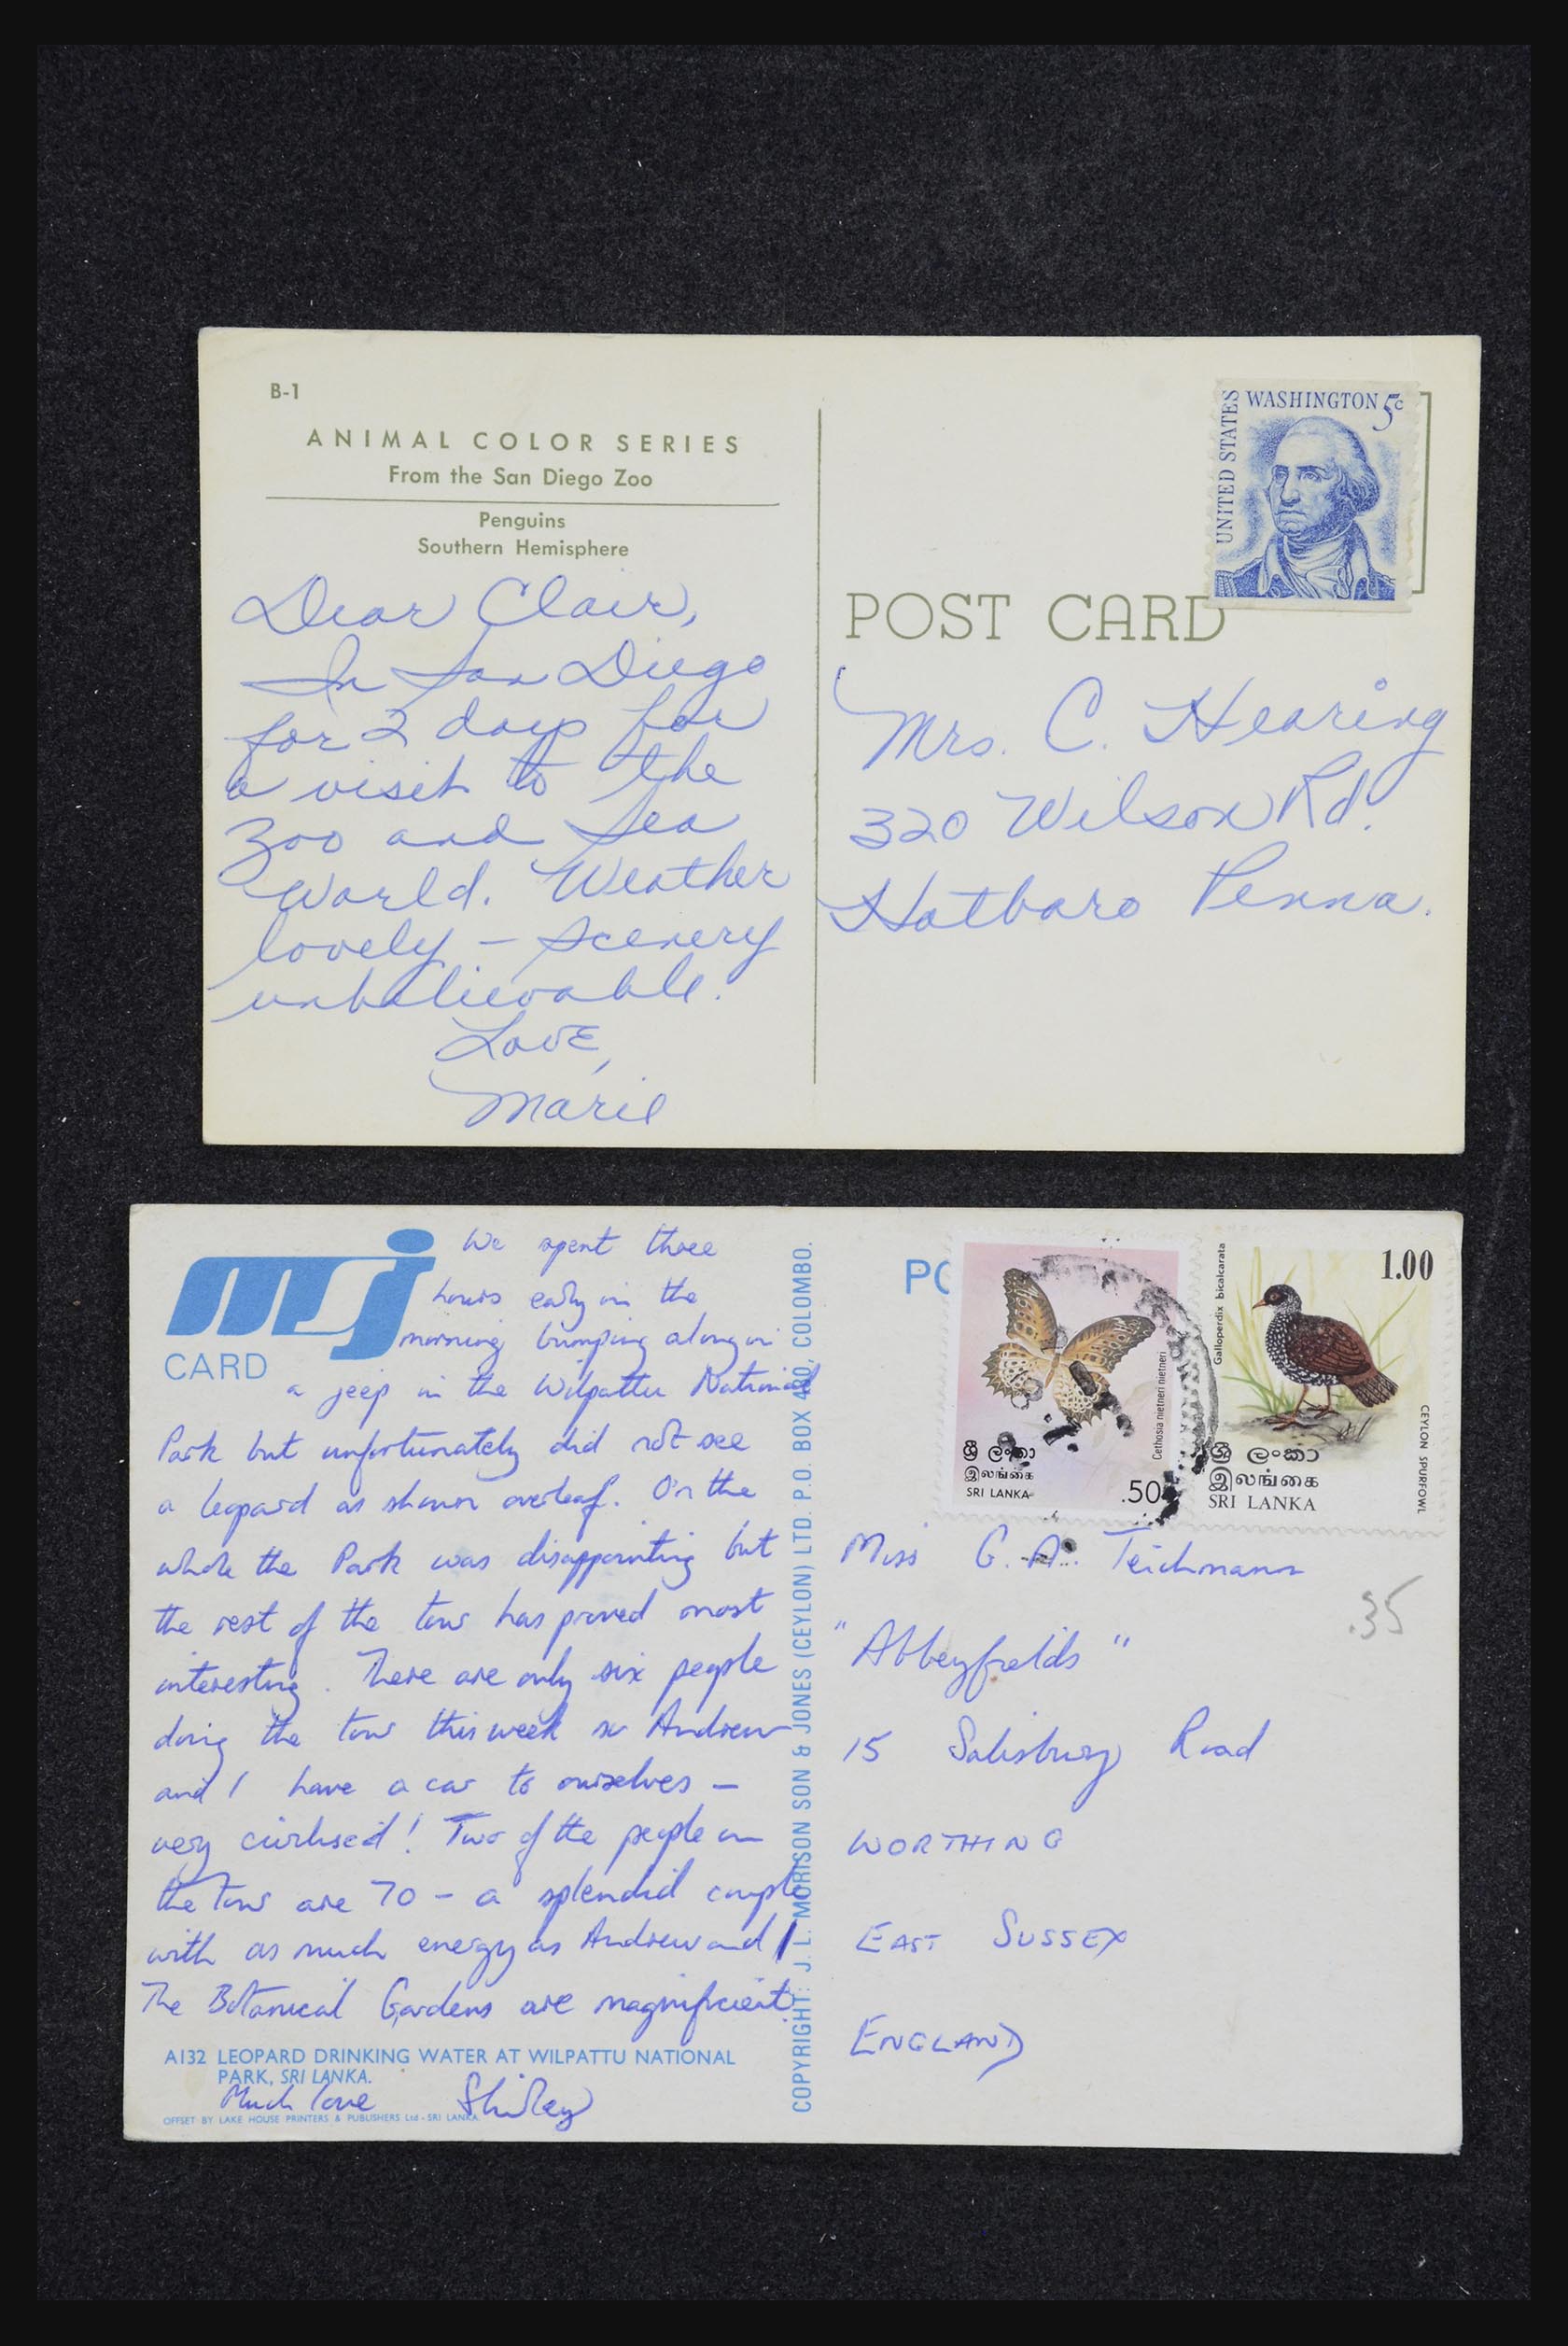 B-1
ANIMAL COLOR SERIES
From the San Diego Zoo
Penguins
Southern Hemisphere
Dear Clair,
In San Diego
for 2 days for
a visit to the
Zoo and Sea
World. Weather
lovely – scenery
unbelievable.
Love,
Marie
UNITED STATES
WASHINGTON 5c
POST CARD
Mrs. C. Hearing
320 Wilson Rd.
Hatboro Penna.
mj
CARD
We spent three
hours early in the
morning bumping along in
a jeep in the Wilpattu National
Park but unfortunately did not see
a leopard as shown overleaf. On the
whole the Park was disappointing but
the rest of the tour has proved most
interesting. There are only six people
doing the tour this week so Andrew
and I have a car to ourselves –
very civilised! Two of the people on
the tour are 70 – a splendid couple
with as much energy as Andrew and I
The Botanical Gardens are magnificient.
A132 LEOPARD DRINKING WATER AT WILPATTU NATIONAL
PARK, SRI LANKA.
Much love Shirley
OFFSET BY LAKE HOUSE PRINTERS & PUBLISHERS Ltd - SRI LANKA.
COPYRIGHT: J. L. MORISON SON & JONES (CEYLON) LTD. P.O. BOX 430, COLOMBO.
PO
Cethosia nietneri nietneri
ශ්‍රී ලංකා
இலங்கை
SRI LANKA
.50
1.00
Galloperdix bicalcarata
CEYLON SPURFOWL
ශ්‍රී ලංකා
இலங்கை
SRI LANKA
Miss G. A. Teichmann
.35
"Abbeyfields"
15 Salisbury Road
WORTHING
EAST SUSSEX
ENGLAND